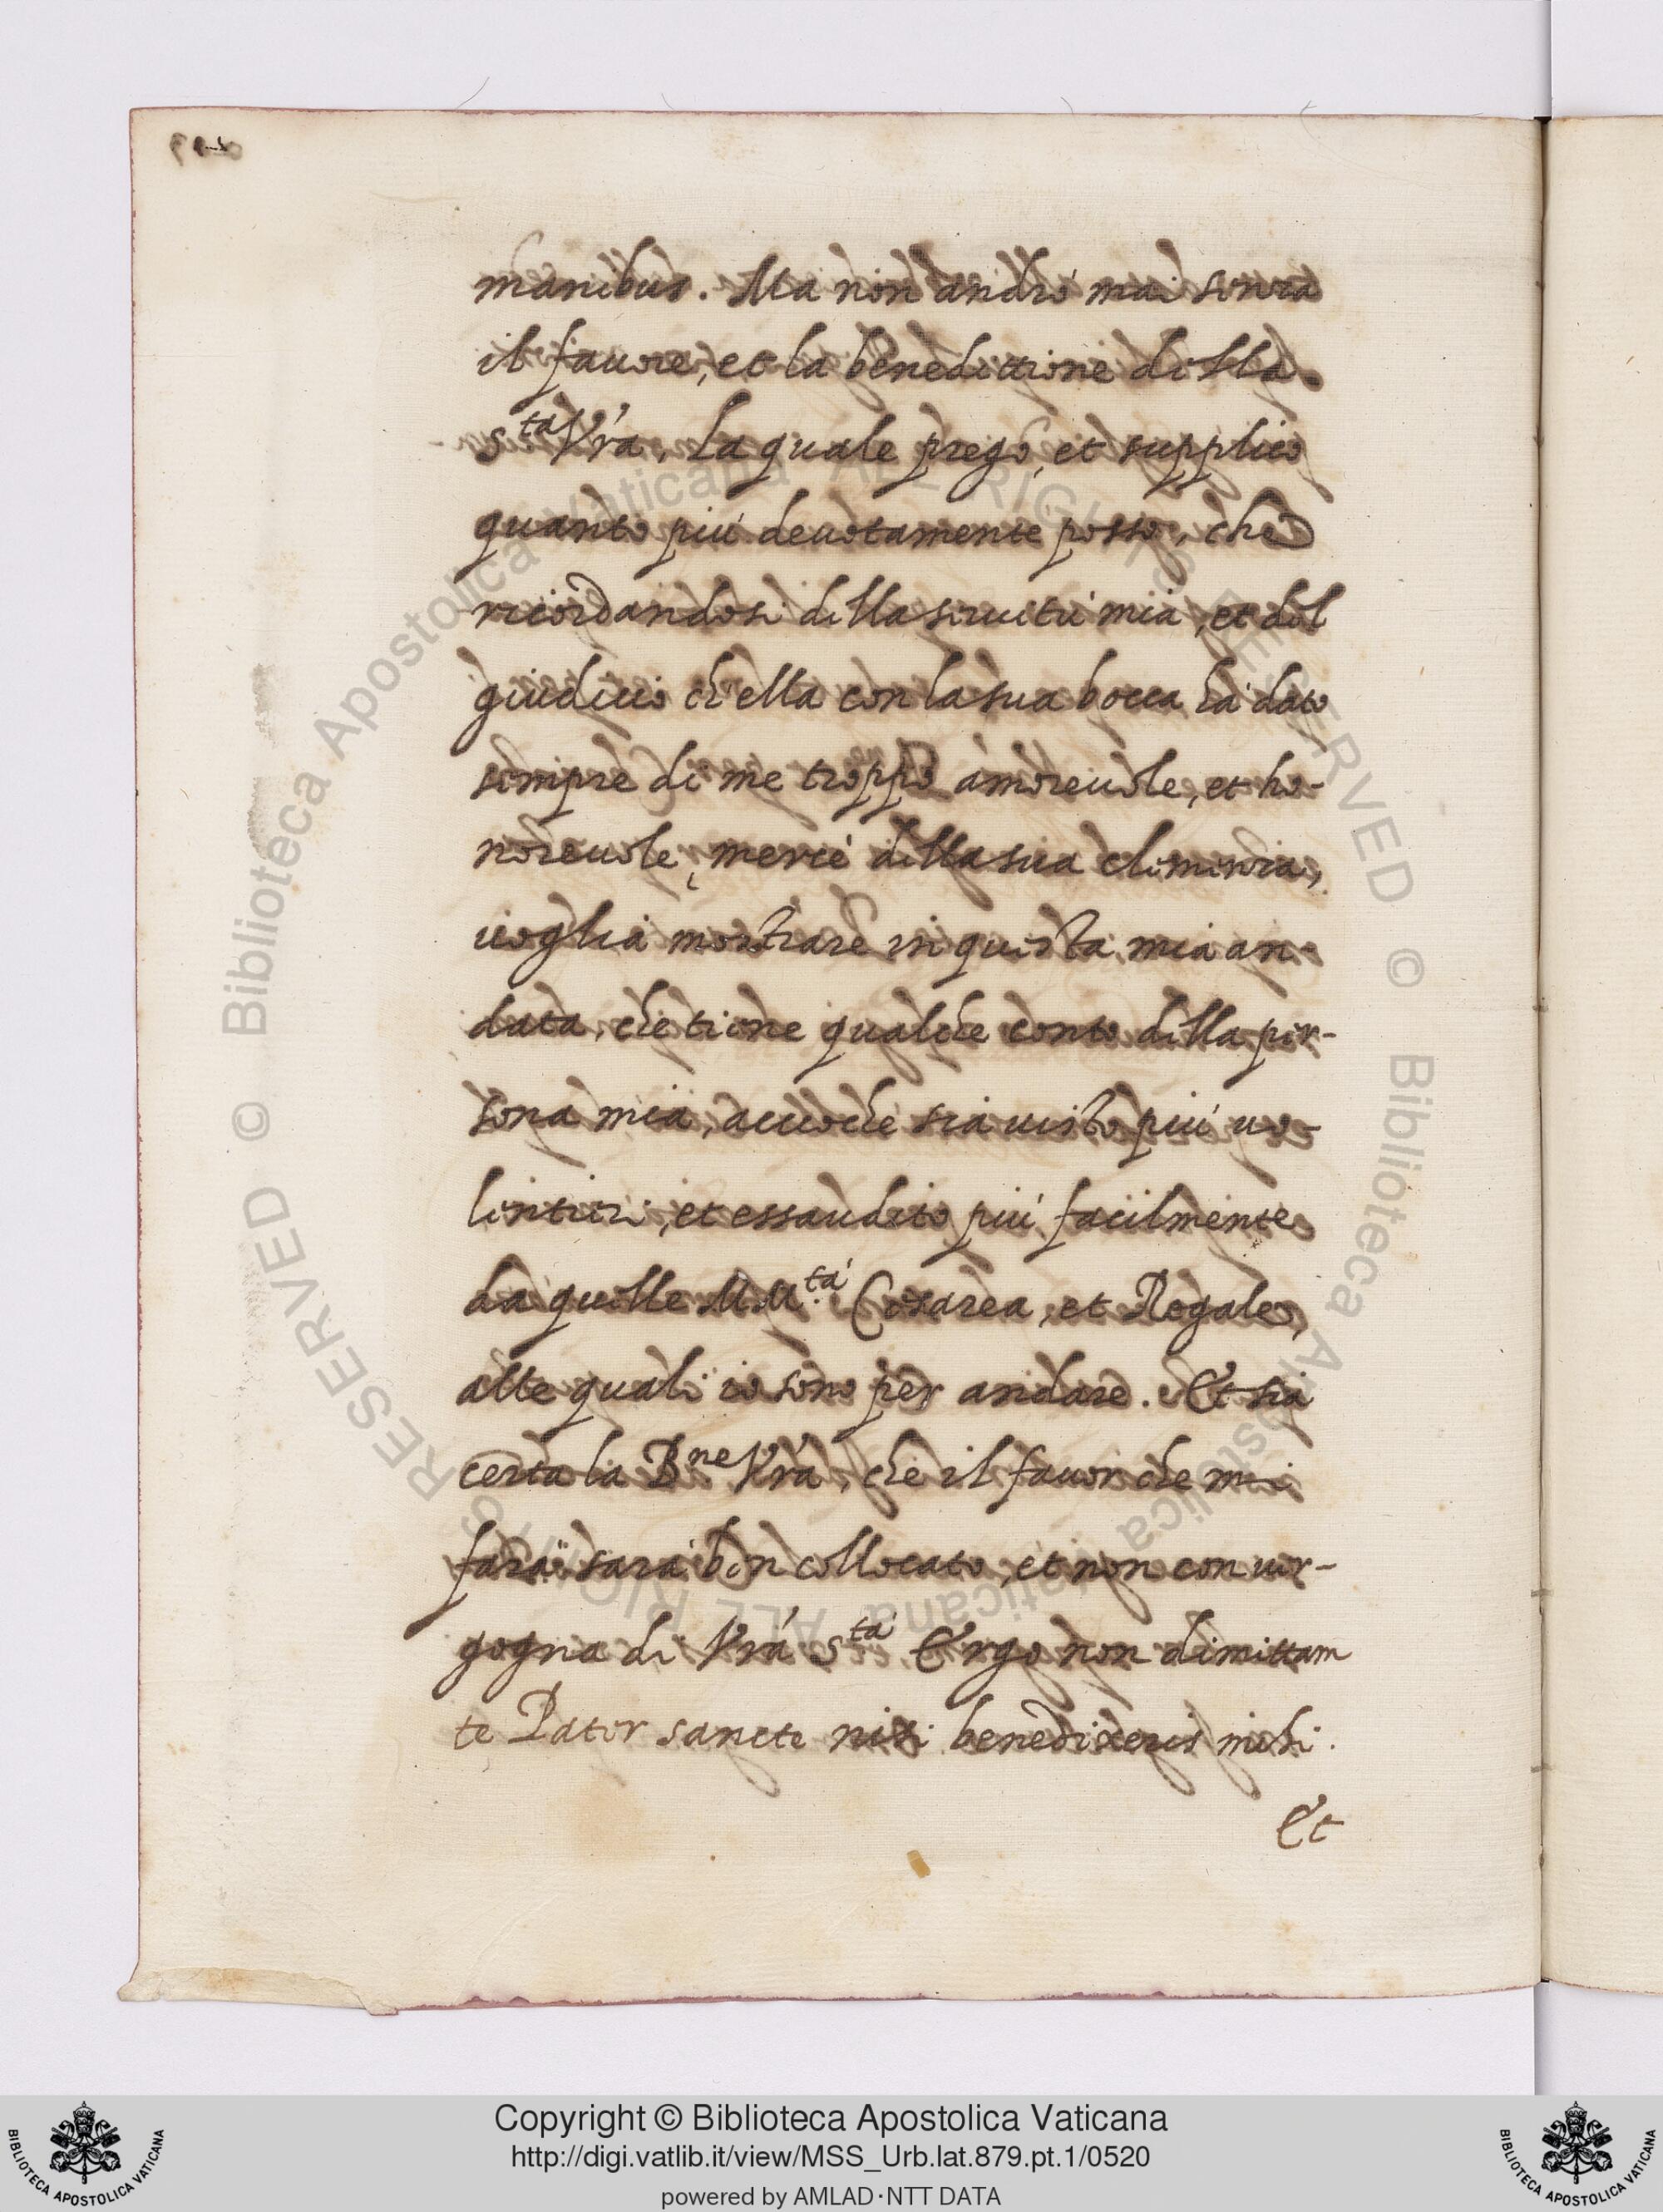 manibus. Ma non andrò mai senza
il fauore, et la benedittione della
S.ta Vrã, La quale prego, et supplico
quanto più deuotamente posso, che
ricordandosi della seruitù mia, et del
giudicio ch'ella con la sua bocca hà dato
sempre di me troppo amoreuole, et ho-
noreuole, mercè della sua clemenza,
uoglia mostrare in questa mia an-
data, che tiene qualche conto della per-
sona mia, accioche sia uisto più uo-
lentieri, et essaudito più facilmente
da quelle M M.tà Cesarea, et Regale,
alle quali io sono per andare. Et sia
certa la B.ne Vrã, che il fauor che mi
farà sarà ben collocato, et non con uer-
gogna di Vrã S.tà Ergo non dimittam
te Pater sancte nisi benedixeris mihi.
Et
© Biblioteca Apostolica Vaticana ALL RIGHTS RESERVED © Biblioteca Apostolica Vaticana ALL RIGHTS RESERVED
Copyright © Biblioteca Apostolica Vaticana
http://digi.vatlib.it/view/MSS_Urb.lat.879.pt.1/0520
powered by AMLAD·NTT DATA
BIBLIOTECA APOSTOLICA VATICANA
BIBLIOTECA APOSTOLICA VATICANA